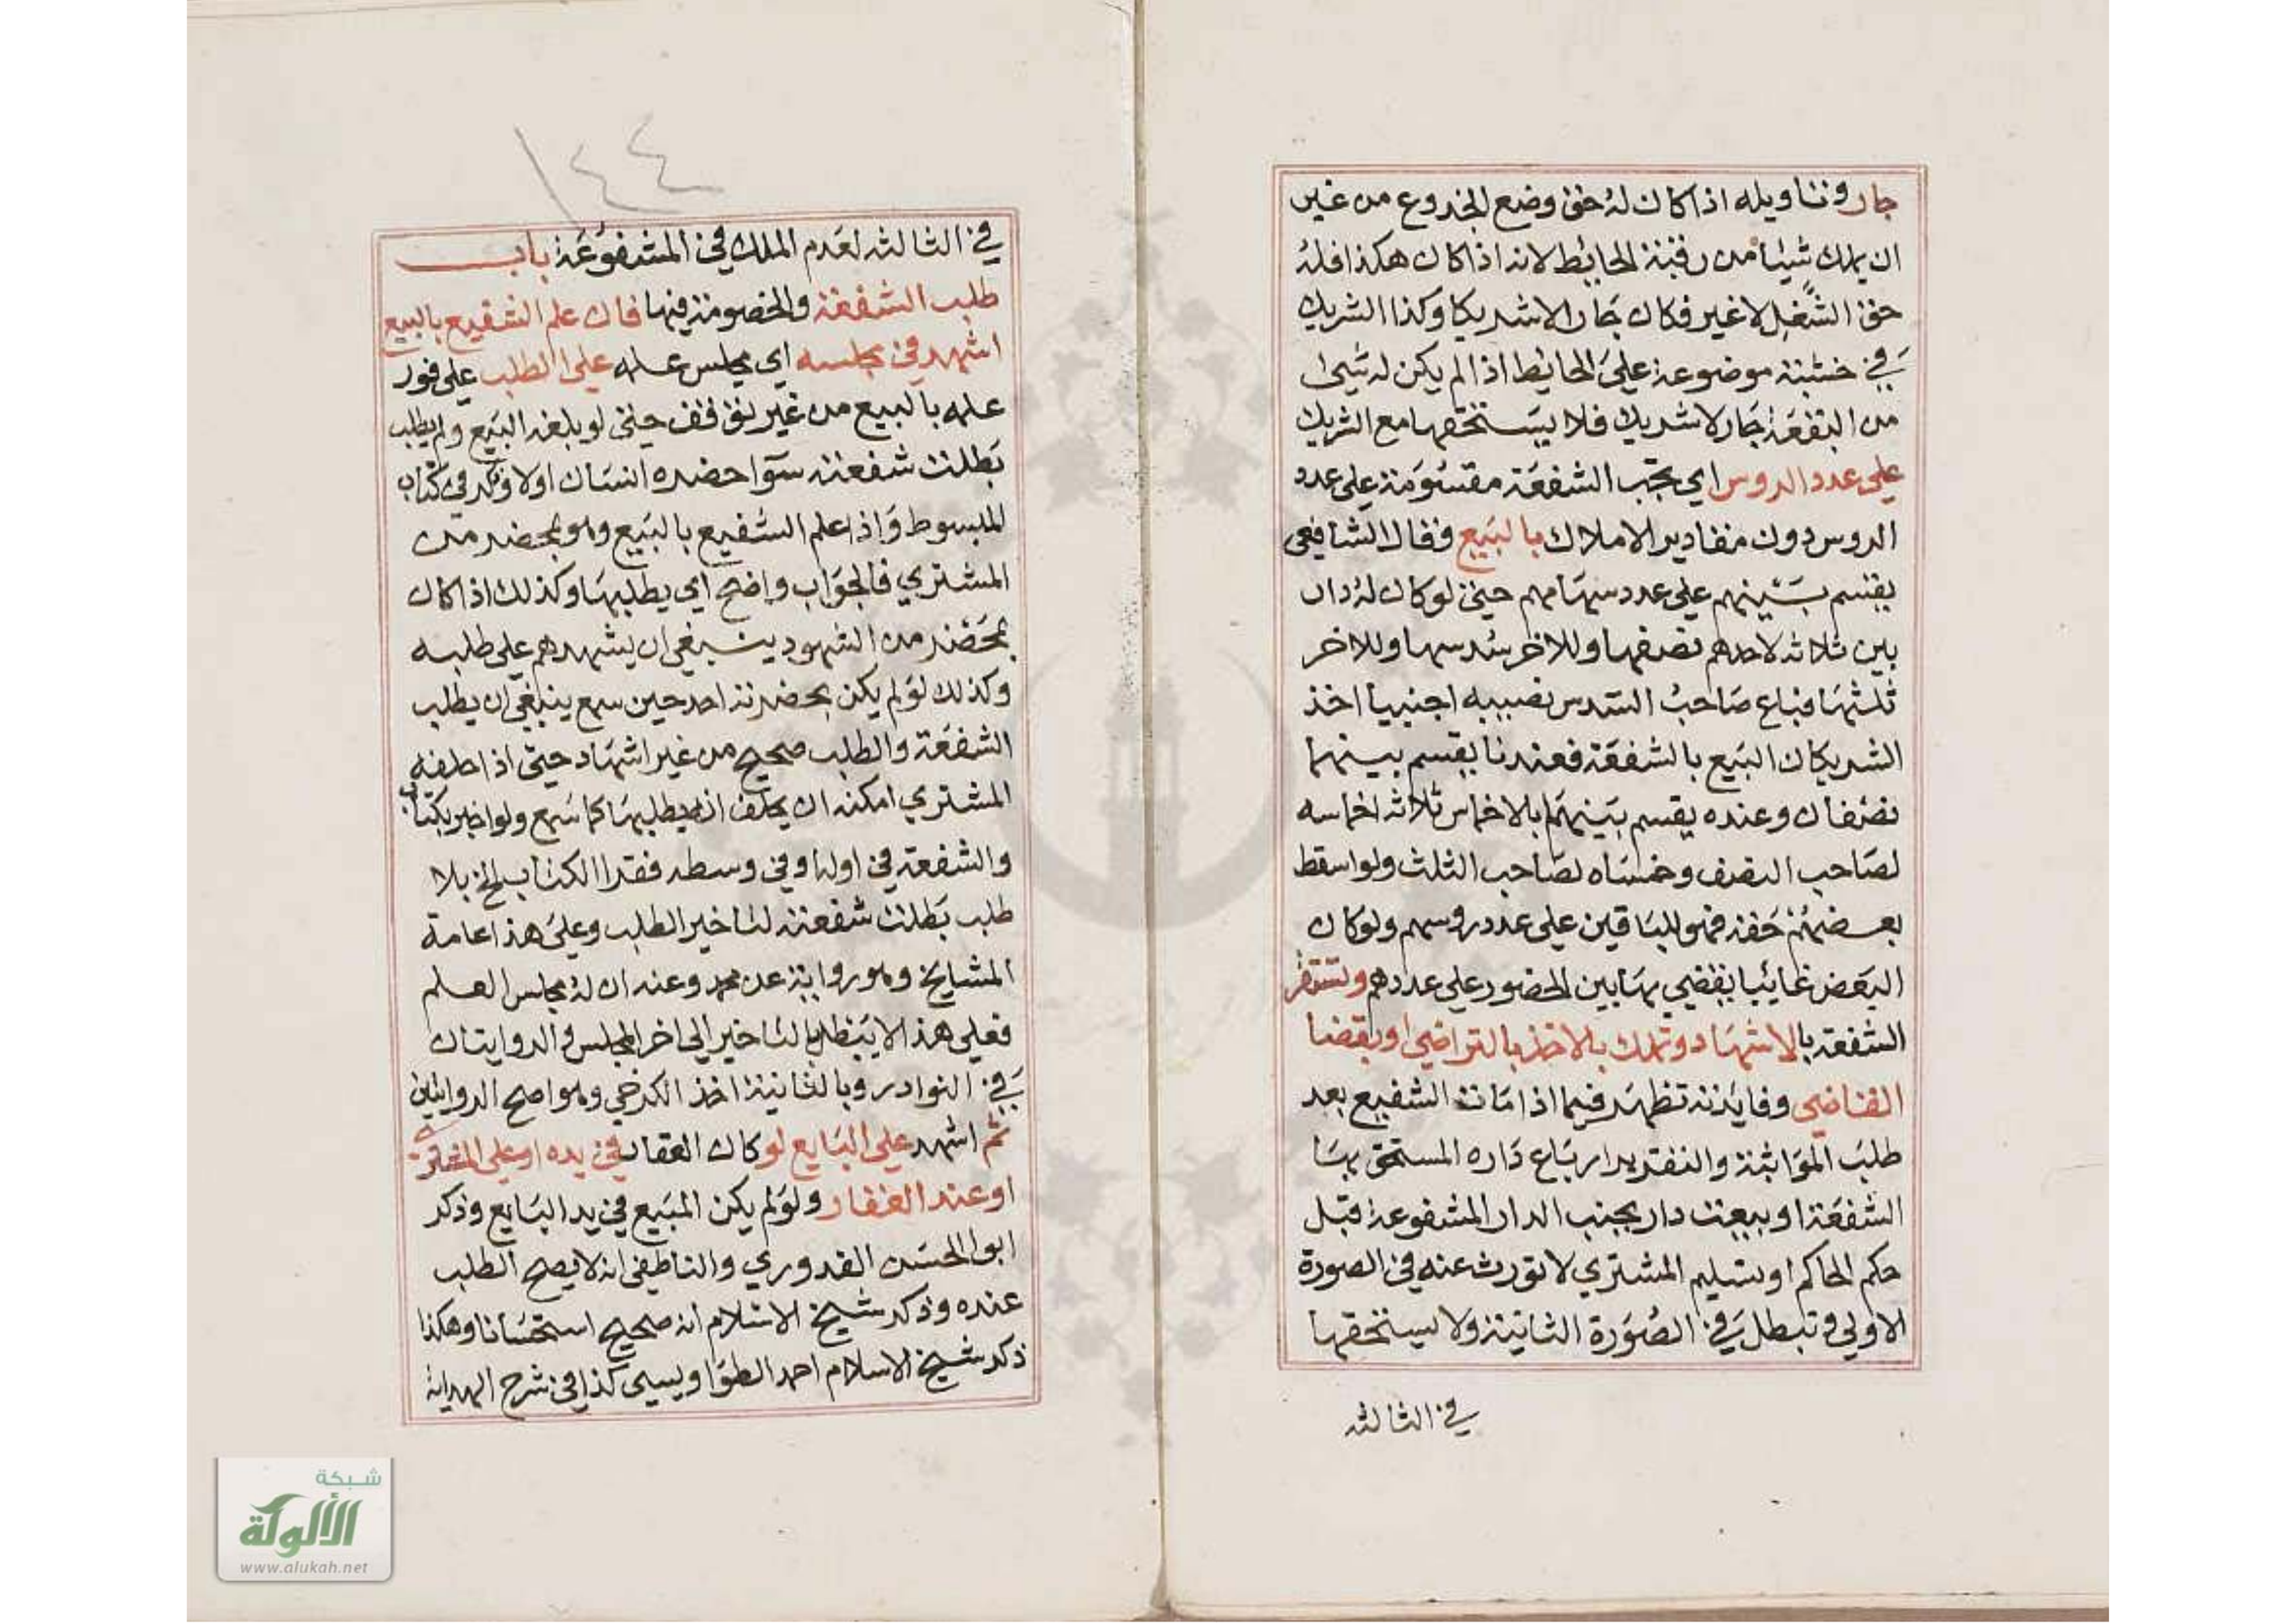 جار وتاويله اذا كان له حق وضع الجذوع من غير
ان يملك شيئا من رقبة الحايط لانه اذا كان هكذا فله
حق الشغل لا غير فكان جارا لا شريكا وكذا الشريك
في خشبة موضوعة علي الحايط اذا لم يكن له شي
من البقعة جار لا شريك فلا يستحقها مع الشريك
علي عدد الروس اي تجب الشفعة مقسومة علي عدد
الروس دون مقادير الاملاك بالبيع وقال الشافعي
يقسم بينهم علي عدد سهامهم حتي لو كان له دار
بين ثلاثه لاحدهم نصفها وللاخر سدسها وللاخر
ثلثها فباع صاحب السدس نصيبه اجنبيا اخذ
الشريكان البيع بالشفعة فعندنا يقسم بينهما
نصفان وعنده يقسم بينهما بالاخماس ثلاثه اخماسه
لصاحب النصف وخمساه لصاحب الثلث ولو اسقط
بعضهم حقه فهو للباقين علي عدد روسهم ولو كان
البعض غائبا يقضي بها بين الحضور علي عددهم وتستقر
الشفعة بالاشهاد وتملك بالاخذ بالتراضي او بقضا
القاضي وفايدته تظهر فيما اذا مات الشفيع بعد
طلب المواثبة والتقرير او باع داره المستحق بها
الشفعة او بيعت دار بجنب الدار المشفوعة قبل
حكم الحاكم او تسليم المشتري لا تورث عنه في الصورة
الاولي وتبطل في الصورة الثانية ولا يستحقها
في الثالثه
١٤٤
في الثالثه لعدم الملك في المشفوعة باب
طلب الشفعة والخصومة فيها فان علم الشفيع بالبيع
اشهد في مجلسه اي مجلس علمه علي الطلب علي فور
علمه بالبيع من غير توقف حتي لو بلغه البيع ولم يطلب
بطلت شفعته سوا حضره انسان اولا وذكر في كتاب
المبسوط واذا علم الشفيع بالبيع وهو بمحضر من
المشتري فالجواب واضح اي يطلبها وكذلك اذا كان
بمحضر من الشهود ينبغي ان يشهدهم علي طلبه
وكذلك لو لم يكن بحضرته احد حين سمع ينبغي ان يطلب
الشفعة والطلب صحيح من غير اشهاد حتي اذا حلفه
المشتري امكنه ان يحلف انه يطلبها كما سمع ولو اخبر بكتاب
والشفعة في اولها وفي وسطه فقرا الكتاب الخ بلا
طلب بطلت شفعته لتاخير الطلب وعلي هذا عامة
المشايخ وهو رواية عن محمد وعنه ان له مجلس العلم
فعلي هذا لا يبطل بالتاخير الي اخر المجلس والروايتان
في النوادر وبالثانية اخذ الكرخي وهو اصح الروايتين
ثم اشهد علي البايع لو كان العقار في يده او علي المشتري
او عند العقار ولو لم يكن المبيع في يد البايع وذكر
ابو الحسن القدوري والناطفي انه لا يصح الطلب
عنده وذكر شيخ الاسلام انه صحيح استحسانا وهكذا
ذكر شيخ الاسلام احمد الطواويسي كذا في شرح الهداية
شبكة
الألوكة
www.alukah.net